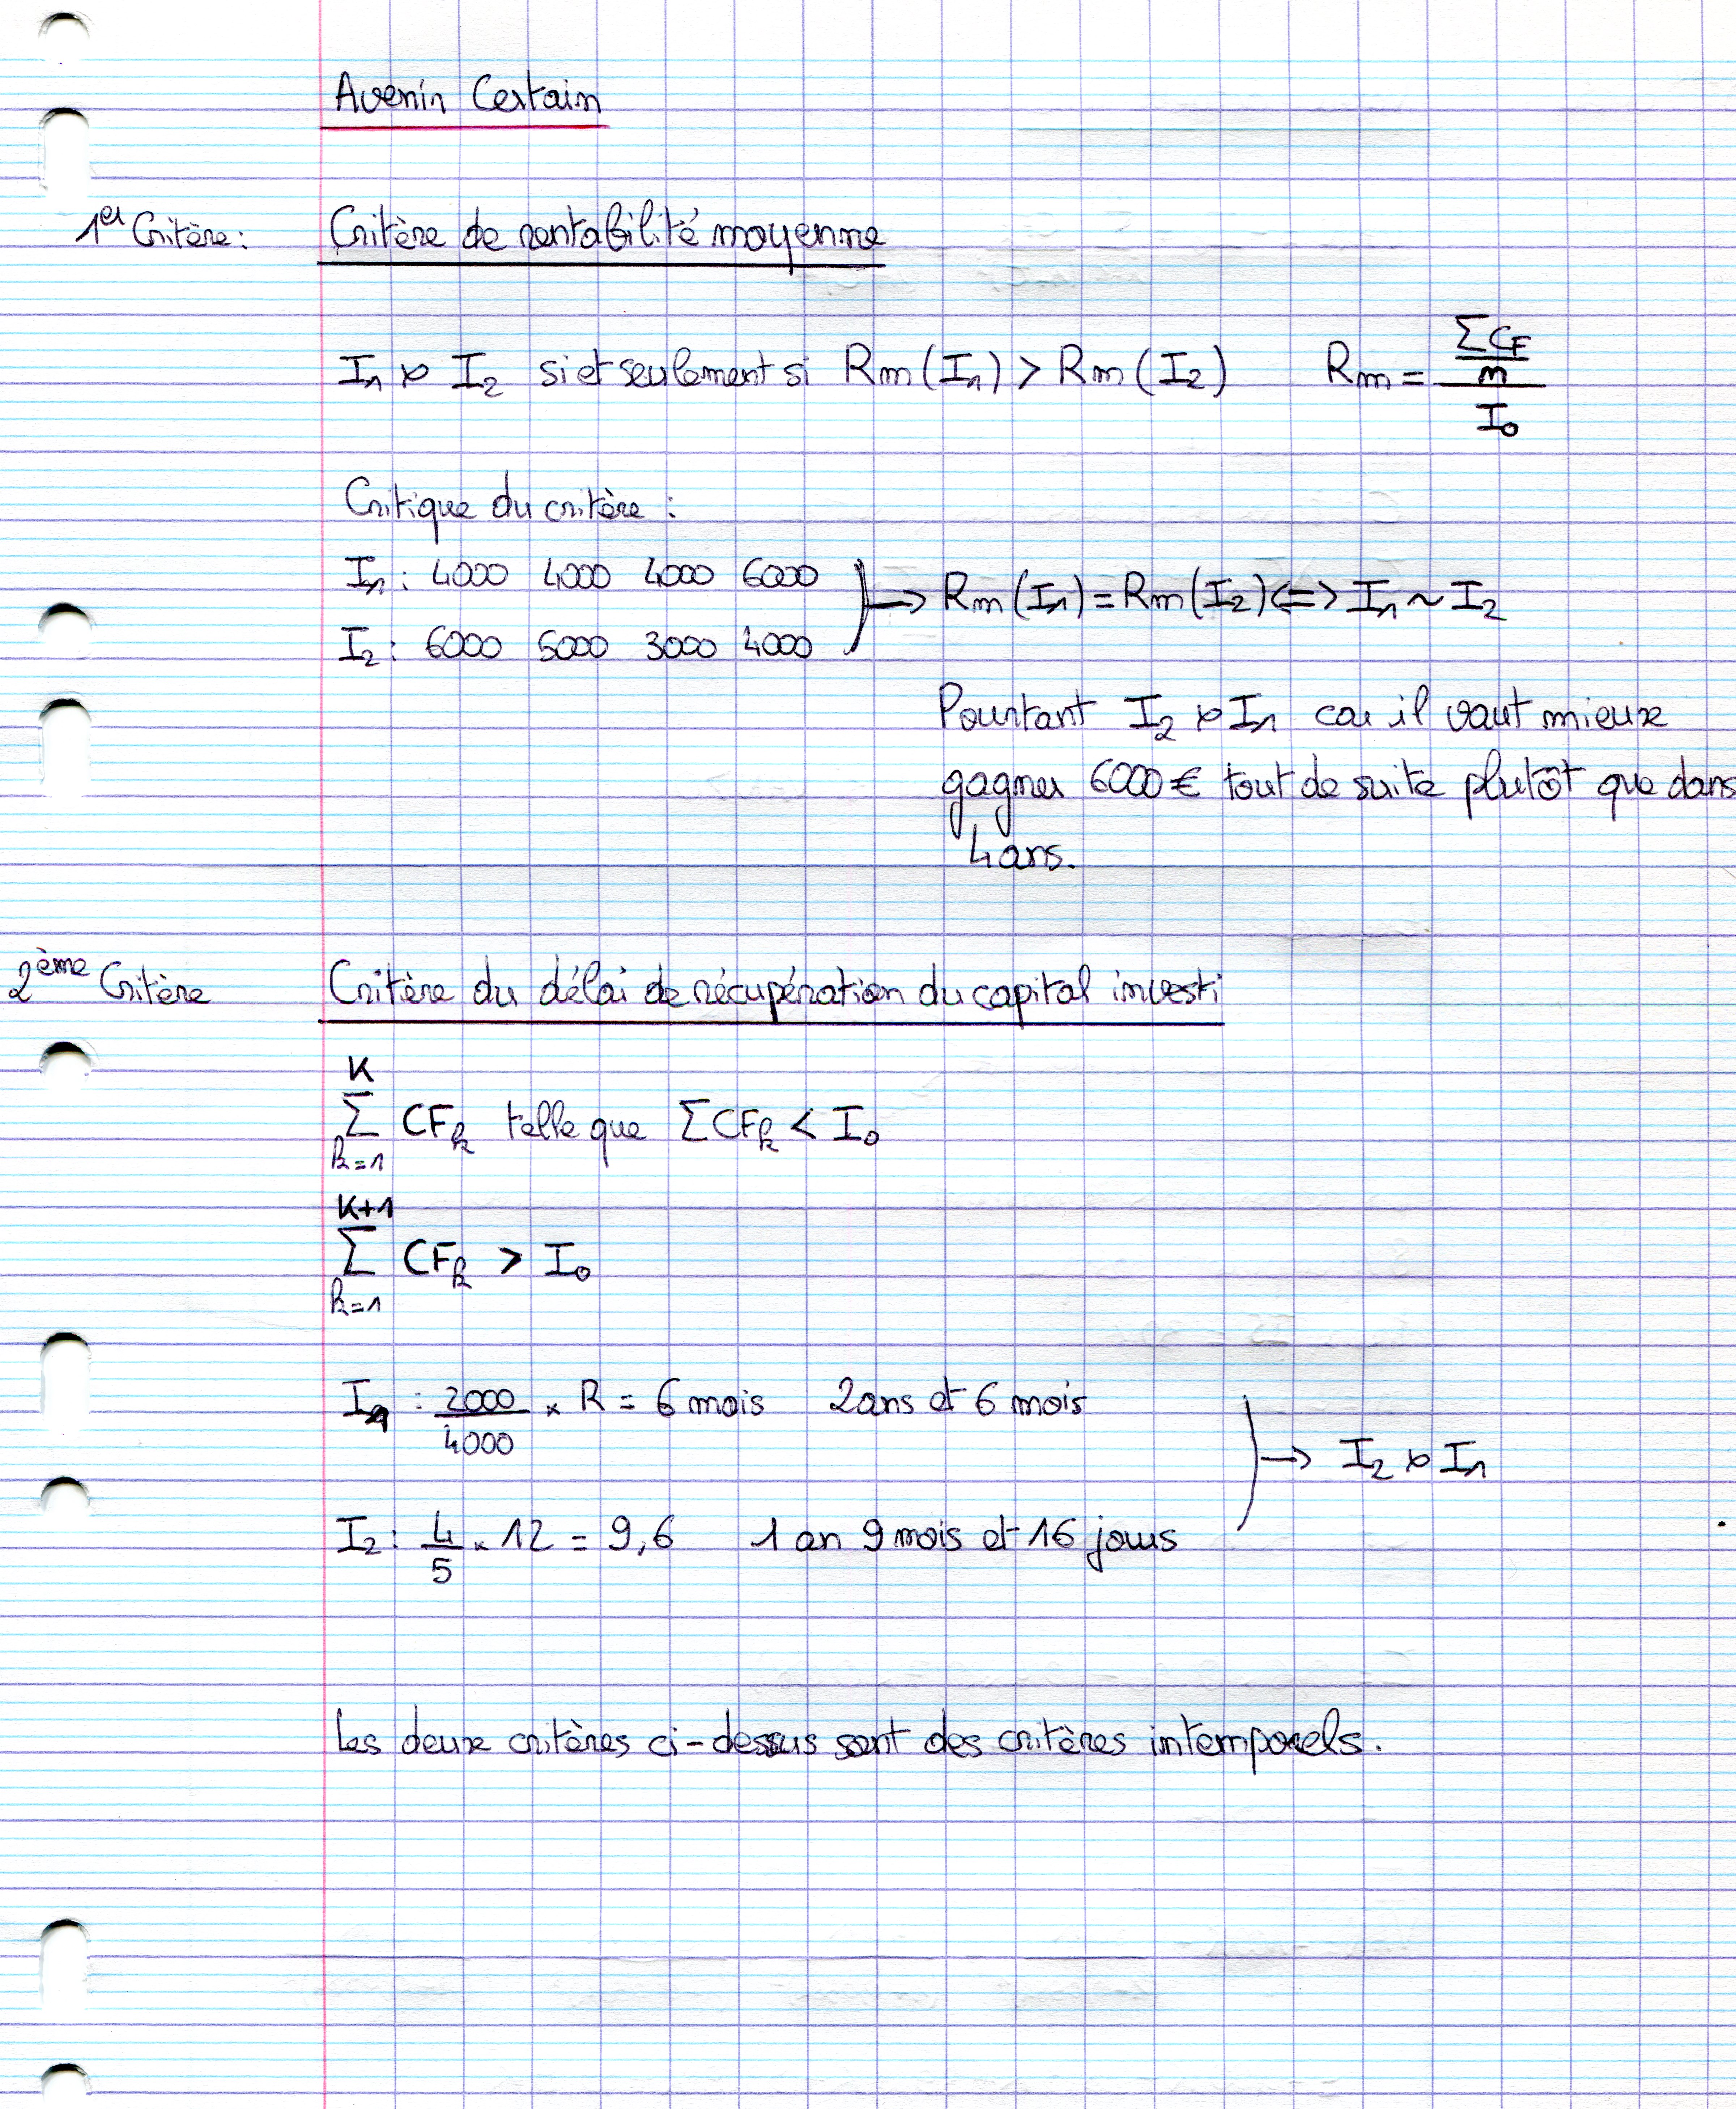 Avenir Certain
1er Critère : Critère de rentabilité moyenne
I₁ ≻ I₂ si et seulement si Rm (I₁) > Rm (I₂) Rm = ((ΣCF)/n)/I₀
Critique du critère :
I₁ : 4000 4000 4000 6000
I₂ : 6000 5000 3000 4000
→ Rm (I₁) = Rm (I₂) <=> I₁ ~ I₂
Pourtant I₂ ≻ I₁ car il vaut mieux
gagner 6000 € tout de suite plutôt que dans
4 ans.
2ème Critère Critère du délai de récupération du capital investi
K
Σ CFk telle que ΣCFk < I₀
k=1
K+1
Σ CFk > I₀
k=1
I₁ : 2000/4000 × R = 6 mois 2 ans et 6 mois
→ I₂ ≻ I₁
I₂ : 4/5 × 12 = 9,6 1 an 9 mois et 16 jours
Les deux critères ci-dessus sont des critères intemporels.